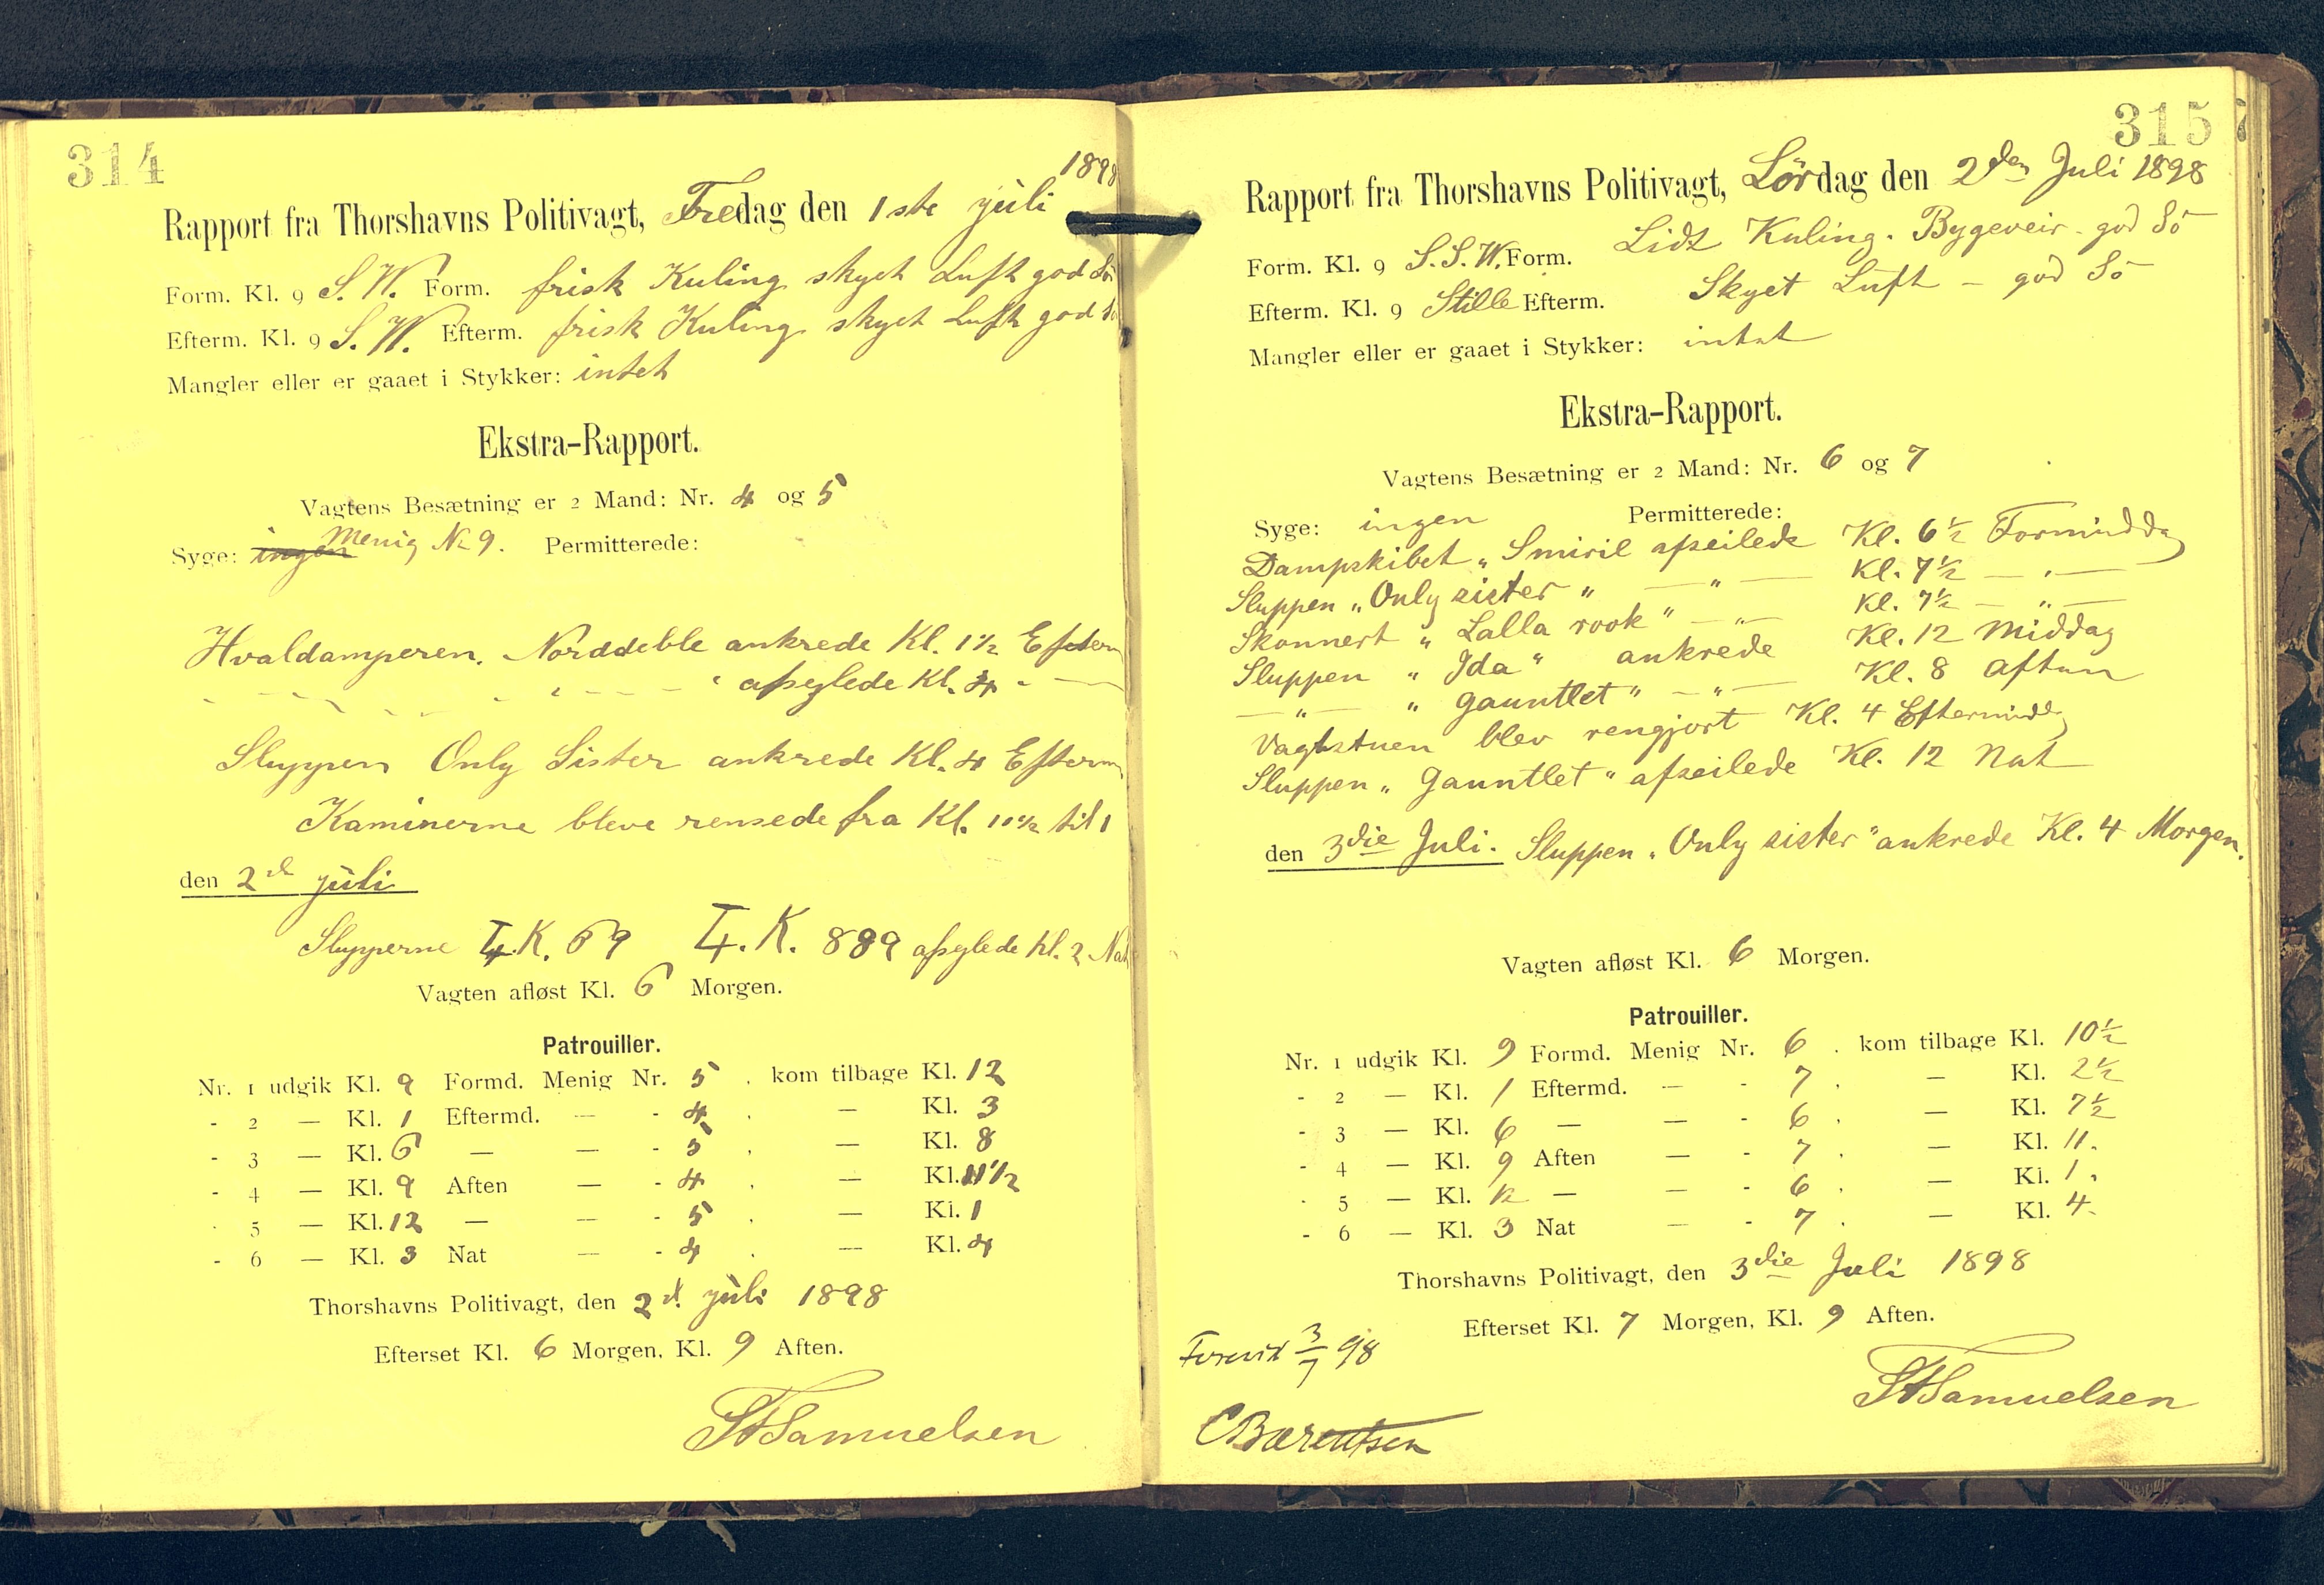 314
1898
Rapport fra Thorshavns Politivagt, Fredag den 1ste juli
Form. Kl. 9 S. W. Form. frisk Kuling skyet Luft god Sö
Efterm. Kl. 9 S. W. Efterm. frisk Kuling skyet Luft god
Mangler eller er gaaet i Stykker: intet
Ekstra-Rapport.
Vagtens Besætning er 2 Mand: Nr. 4 og 5
Syge: ingen Menig No 9. Permitterede:
Hvaldamperen. Norddeble ankrede Kl. 1½ Efterm
" afseglede Kl. 4 " —
Sluppen Only Sister ankrede Kl. 4 Efterm
Kaminerne bleve rensede fra Kl. 10½ til 1
den 2d juli
Slupperne T.K. 69 T.K. 889 afseglede Kl. 2 Nat
Vagten afløst Kl. 6 Morgen.
Patrouiller.
Nr. 1 udgik Kl. 9 Formd. Menig Nr. 5 . kom tilbage Kl. 12
- 2 — Kl. 1 Eftermd. — - 4 . — Kl. 3
- 3 — Kl. 6 — — - 5 . — Kl. 8
- 4 — Kl. 9 Aften — - 4 . — Kl. 11½
- 5 — Kl. 12 — — - 5 . — Kl. 1
- 6 — Kl. 3 Nat — - 4 . — Kl. 4
Thorshavns Politivagt, den 2d. juli 1898
Efterset Kl. 6 Morgen, Kl. 9 Aften.
Samuelsen
315
Rapport fra Thorshavns Politivagt, Lördag den 2den Juli 1898
Form. Kl. 9 S.S.W. Form. Lidt Kuling. Bygeveir - god Sö
Efterm. Kl. 9 Stille Efterm. Skyet Luft — god Sö
Mangler eller er gaaet i Stykker: intet
Ekstra-Rapport.
Vagtens Besætning er 2 Mand: Nr. 6 og 7
Syge: ingen Permitterede:
Dampskibet „Smiril afseilede Kl. 6½ Formiddag
Sluppen „Only sister" — " — Kl. 7½ — " —
Skonnert „Lalla rook" — " — Kl. 7½ — " —
Sluppen „Ida" ankrede Kl. 12 Middag
— " — „Gauntlet" — " — Kl. 8 Aften
Vagtstuen blev rengjort Kl. 4 Eftermiddg
Sluppen „Gauntlet" afseilede Kl. 12 Nat
den 3die Juli. Sluppen „Only sister" ankrede Kl. 4 Morgen.
Vagten afløst Kl. 6 Morgen.
Patrouiller.
Nr. 1 udgik Kl. 9 Formd. Menig Nr. 6 . kom tilbage Kl. 10½
- 2 — Kl. 1 Eftermd. — - 7 . — Kl. 2½
- 3 — Kl. 6 — — - 6 . — Kl. 7½
- 4 — Kl. 9 Aften — - 7 . — Kl. 11.
- 5 — Kl. 12 — — - 6 . — Kl. 1.
- 6 — Kl. 3 Nat — - 7 . — Kl. 4.
Thorshavns Politivagt, den 3die Juli 1898
Efterset Kl. 7 Morgen, Kl. 9 Aften.
Forevist 3/7 98
Samuelsen
CBærentsen